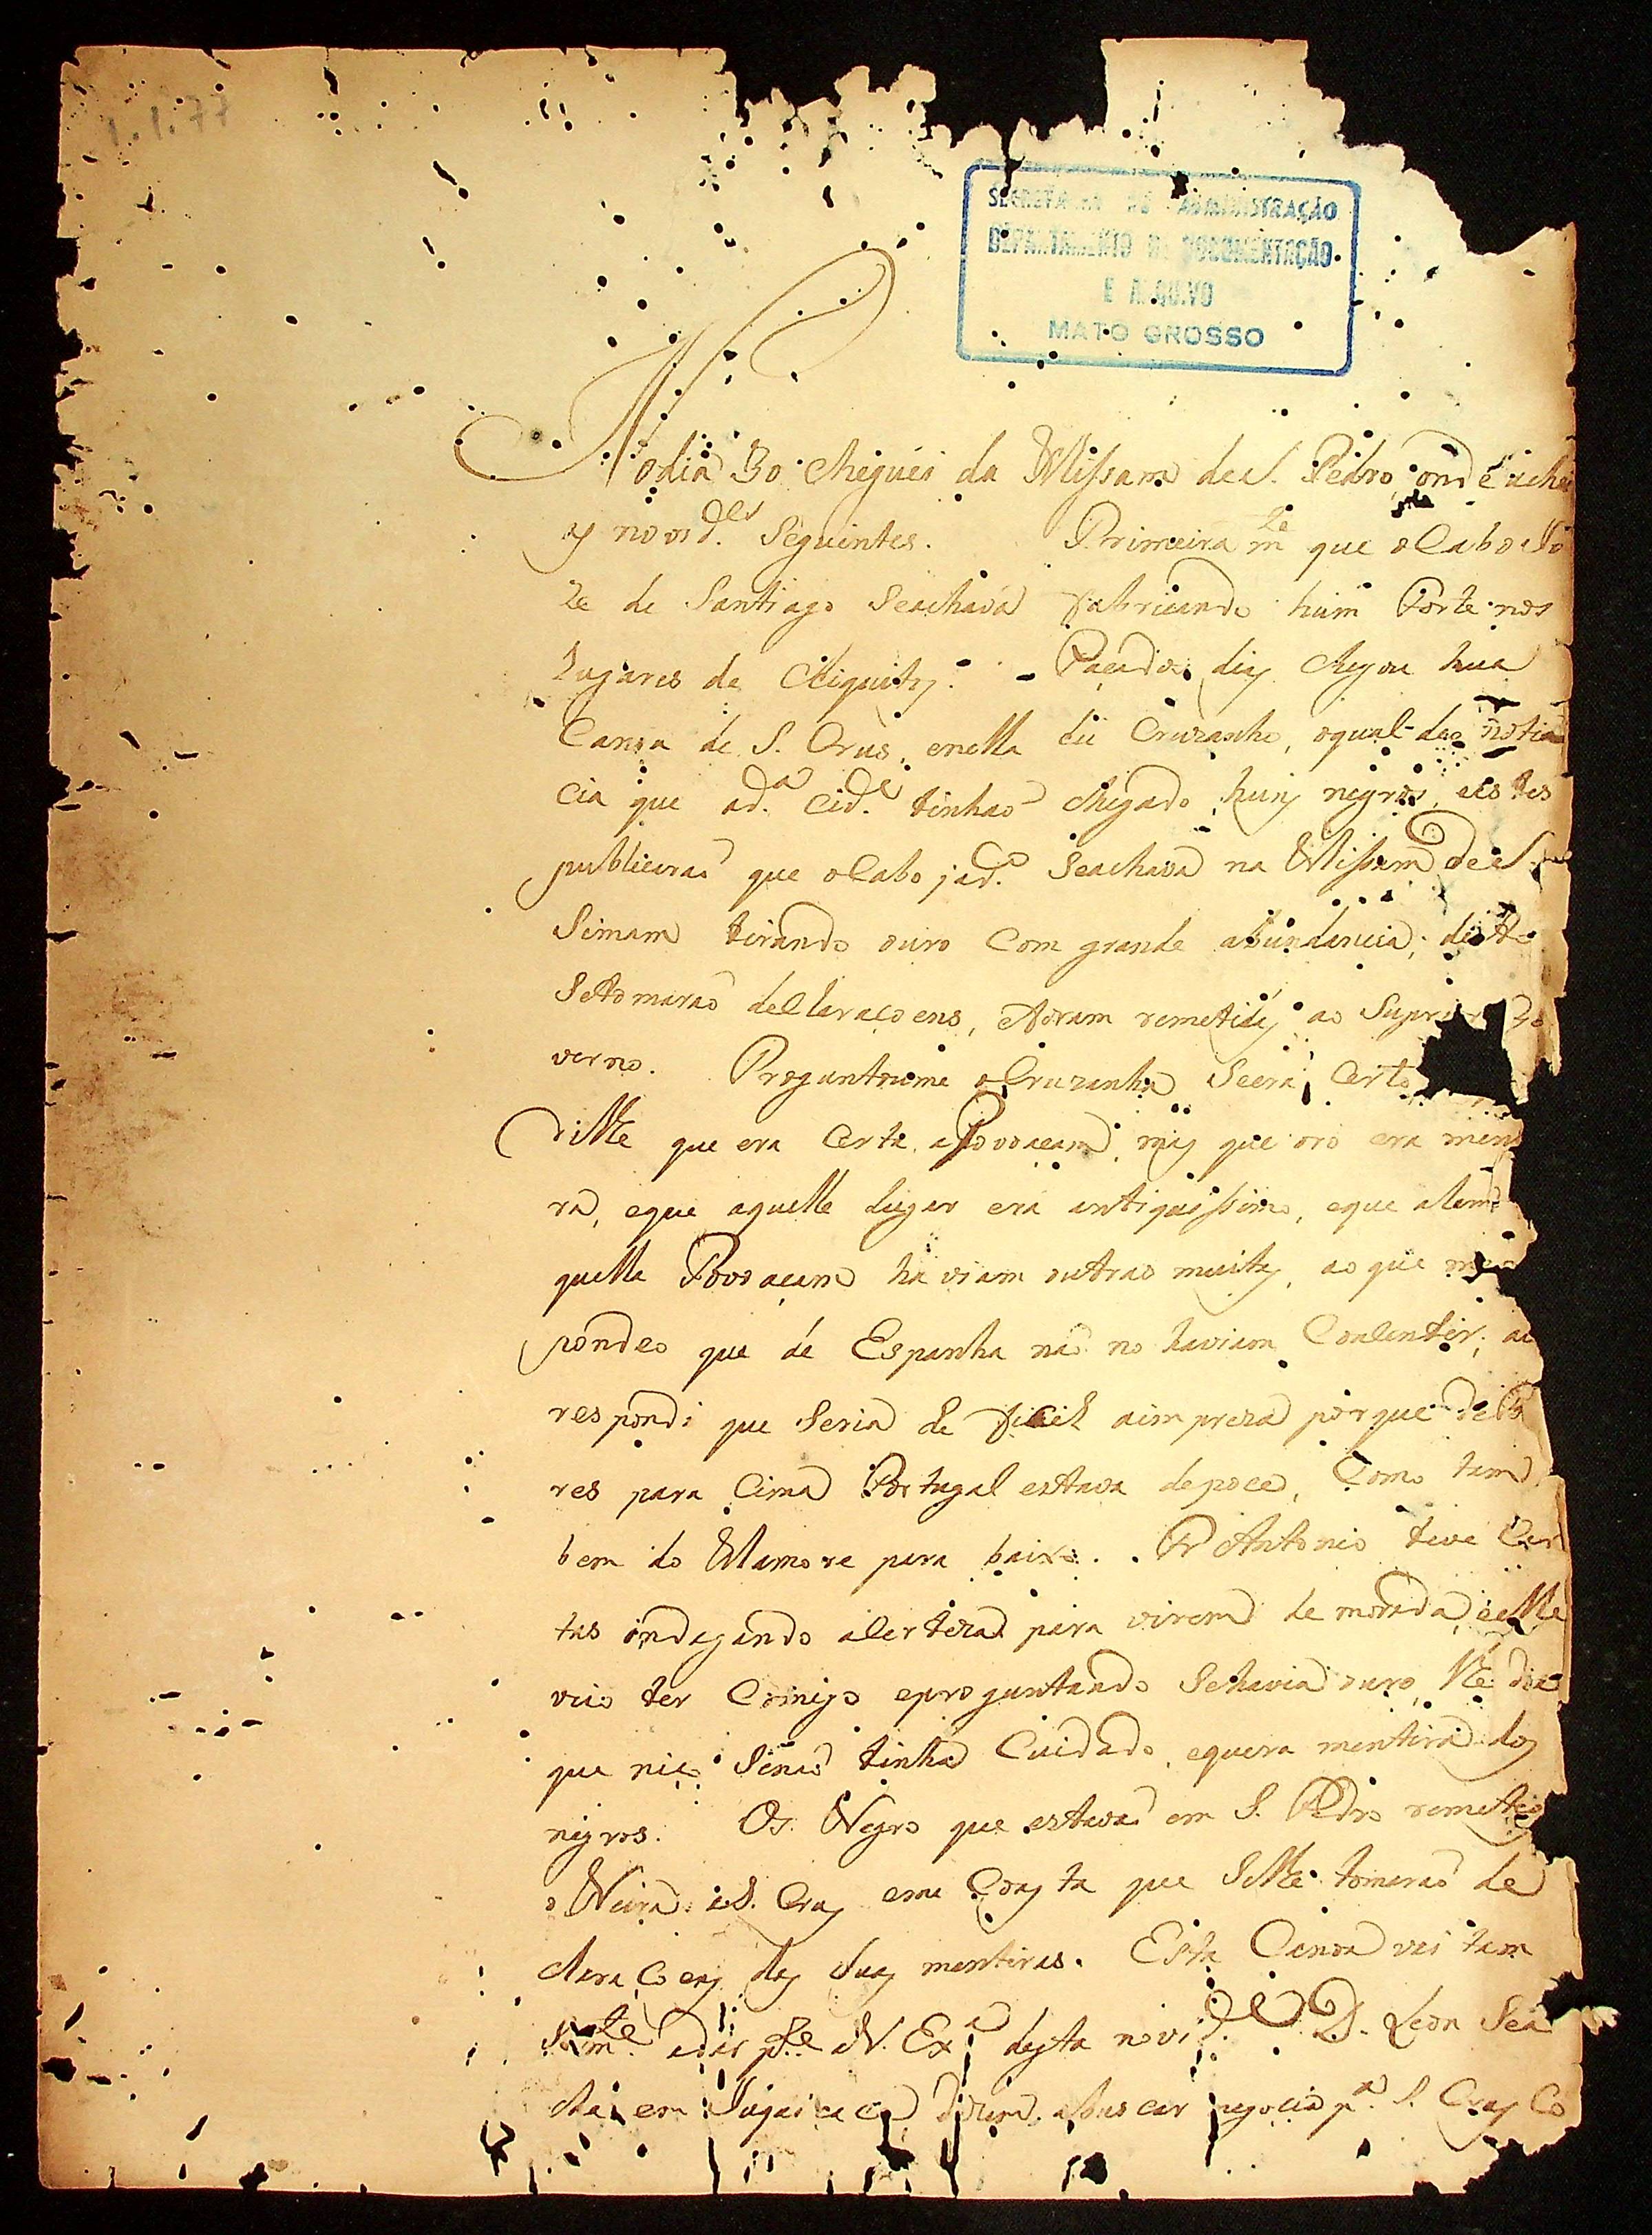 1.1.77
SECRETARIA DE ADMINISTRAÇÃO
DEPARTAMENTO DE DOCUMENTAÇÃO
E ARQUIVO
MATO GROSSO
No dia 30 cheguei da Missam de S. Pedro, onde achei
as novid.es Seguintes. Primeira m.te que o Cabo
de Santiago Seachava fabricando hum Forte nos
Lugares de Chiquitos. Pacados dias chegou hua
Canoa de S. Crus, enella Cruzanho, oqual deo noti
cia que ad.a Cid.e tinhaõ chegado huns negros, eestes
publicaraõ que oCabo jad.o Seachava na Missam de S.
Simam tirando ouro Com grande abundancia; deste
Setomaraõ dellaraçoens, eforam remetidas ao Superior Go
verno. Proguntoume oCruzanho Seera Certo
disse que era Certa aPovoacam, mas que oro era men
ra, eque aquelle Lugar era antiquissimo, eque alem
quella Povoaçam haviam outras muitas, ao que me
pondeo que de Espanha naõ no haviam Conlentir; ao
respondi que Seria de ficil aimpreza porque
res para Cima Portugal estava depoce, Como tam
bem do Mamore para baixo. Fr Antonio teve Car
tas indagando aCerteza para virem de morada, eelle
veio ter Comigo eproguntando Sehavia ouro, lhe dice
que niço Senaõ tinha Cuidado, equera mentira dos
negros. Os Negro que estavaõ em S. Pedro remeteo
o Neira aS. Cruz eme Consta que Selhe tomaraõ de
claraçoens das Suas mentiras. Esta Canoa vai tam
Som.te adar p.te a V. Ex.a desta novid.e D. Leon Sea
cha em dizem abuscar negocio p.a S. Cruz Co